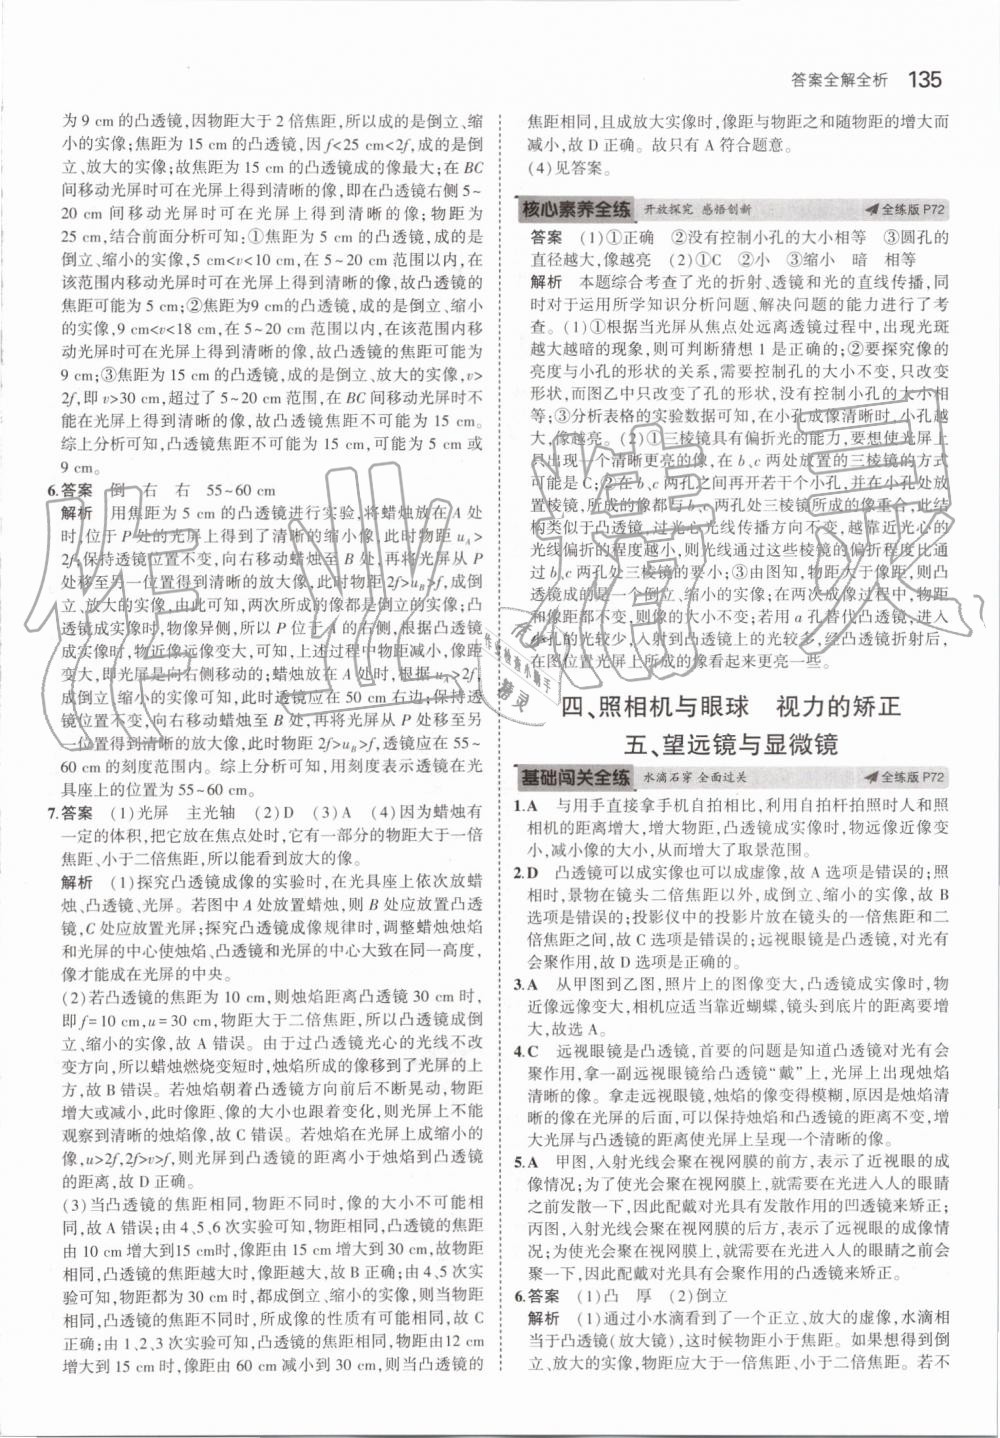 答案全解全析 135
为 9 cm 的凸透镜,因物距大于 2 倍焦距,所以成的是倒立、缩
小的实像;焦距为 15 cm 的凸透镜,因 f<25 cm<2f,成的是倒
立、放大的实像;故焦距为 15 cm 的凸透镜成的像最大;在 BC
间移动光屏时可在光屏上得到清晰的像,即在凸透镜右侧 5~
20 cm 间移动光屏时可在光屏上得到清晰的像;物距为
25 cm,结合前面分析可知:①焦距为 5 cm 的凸透镜,成的是倒
立、缩小的实像,5 cm<v<10 cm,在 5~20 cm 范围以内,在
该范围内移动光屏时可在光屏上得到清晰的像,故凸透镜的
焦距可能为 5 cm;②焦距为9 cm的凸透镜,成的是倒立、缩小
的实像,9 cm<v<18 cm,在 5~20 cm 范围以内,在该范围内移
动光屏时可在光屏上得到清晰的像,故凸透镜的焦距可能为
9 cm;③焦距为 15 cm 的凸透镜,成的是倒立、放大的实像,v>
2f,即 v>30 cm,超过了 5~20 cm 范围,在 BC 间移动光屏时不
能在光屏上得到清晰的像,故凸透镜的焦距不可能为 15 cm。
综上分析可知,凸透镜焦距不可能为 15 cm,可能为 5 cm 或
9 cm。
6.答案 倒 右 右 55~60 cm
解析 用焦距为 5 cm 的凸透镜进行实验,将蜡烛放在 A 处
时,位于 P 处的光屏上得到了清晰的缩小像,此时物距 uA>
2f,保持透镜位置不变,向右移动蜡烛至 B 处,再将光屏从 P
处移至另一位置得到清晰的放大像,此时物距 2f>uB>f,成倒
立、放大的实像,由此可知,两次所成的像都是倒立的实像;凸
透镜成实像时,物像异侧,所以 P 位于 A 的右侧,根据凸透镜
成实像时,物近像远像变大,可知,上述过程中物距减小,像距
变大,即光屏是向右侧移动的;蜡烛放在 A 处时,根据 uA>2f,
成倒立、缩小的实像可知,此时透镜应在 50 cm 右边;保持透
镜位置不变,向右移动蜡烛至 B 处,再将光屏从 P 处移至另
一位置得到清晰的放大像,此时物距 2f>uB>f,透镜应在 55~
60 cm 的刻度范围内。综上分析可知,用刻度表示透镜且
位置为 55~60 cm。
7.答案 (1)光屏 主光轴 (2)D (3)A (4)因为蜡烛有
一定的体积,把它放在焦点处时,它有一部分的物距大于一倍
焦距、小于二倍焦距,所以能看到放大的像。
解析 (1)探究凸透镜成像的实验时,在光具座上依次放蜡
烛、凸透镜、光屏。若图中 A 处放置蜡烛,则 B 处应放置凸透
镜,C 处应放置光屏;探究凸透镜成像规律时,调整蜡烛烛焰
和光屏的中心使烛焰、凸透镜和光屏的中心大致在同一高度,
像才能成在光屏的中央。
(2)若凸透镜的焦距为 10 cm,则烛焰距离凸透镜 30 cm 时,
即 f=10 cm,u=30 cm,物距大于二倍焦距,所以凸透镜成倒
立、缩小的实像,故 A 错误。由于过凸透镜光心的光线不改
变方向,所以蜡烛燃烧变短时,烛焰的像移到了光屏的上
方,故 B 错误。若烛焰朝着凸透镜方向前后不断晃动,物距
增大或减小,此时像距、像的大小也跟着变化,则光屏上不能
观察到清晰的烛焰像,故 C 错误。若烛焰在光屏上成缩小的
像,u>2f,2f>v>f,则光屏到凸透镜的距离小于烛焰到凸透镜
的距离,故 D 正确。
(3)当凸透镜的焦距相同,物距不同时,像的大小不可能相
同,故 A 错误;由 4、5、6 次实验可知,当凸透镜的焦距相同,物距
由 10 cm 增大到15 cm时,像距由 15 cm 增大到 30 cm,故物距
相同,凸透镜的焦距越大时,像距越大,故 B 正确;由 4、5 次实
验可知,物距为 30 cm 时,都成倒立、缩小的实像,则当物距相
同,凸透镜的焦距不同时,所成像的性质有可能相同,故 C
正确;由 1、2、3 次实验可知,凸透镜的焦距相同,物距由12 cm
增大到 15 cm 时,像距由 60 cm 减小到 30 cm,则当凸透镜的
焦距相同,且成放大实像时,像距与物距之和随物距的增大而
减小,故 D 正确。故只有 A 符合题意。
(4)见答案。
核心素养全练 开放探究 感悟创新 全练版 P72
答案 (1)①正确 ②没有控制小孔的大小相等 ③圆孔的
直径越大,像越亮 (2)①C ②小 ③缩小 暗 相等
解析 本题综合考查了光的折射、透镜和光的直线传播,同
时对于运用所学知识分析问题、解决问题的能力进行了考
查。(1)①根据当光屏从焦点处远离透镜过程中,出现光斑
越大越暗的现象,则可判断猜想 1 是正确的;②要探究像的
亮度与小孔的形状的关系,需要控制孔的大小不变,只改变
形状,而图乙中只改变了孔的形状,没有控制小孔的大小相
等;③分析表格的实验数据可知,在小孔成像清晰时,小孔越
大,像越亮。(2)①三棱镜具有偏折光的能力,要想使光屏上
只出现一个清晰更亮的像,在 b、c 两处放置的三棱镜的方式
可能是 C;②在 b、c 孔之间再开若干个小孔,并在小孔处放
置棱镜,所成的像都与 b、c 两孔处三棱镜所成的像重合,此结
构类似于凸透镜,过光心光线传播方向不变,越靠近光心的
光线偏折的程度越小,则光线通过这些棱镜的偏折程度都
比 b、c 两孔处三棱镜的要小;③由图知,物距大于像距,则凸
透镜成的是一个倒立、缩小的实像;在两次成像过程中,物距
和像距都不变,则像的大小不变;若用 a 孔替代凸透镜,进入
小孔的光较少,入射到凸透镜上的光较多,经凸透镜折射后,
在图位置光屏上所成的像看起来更亮一些。
四、照相机与眼球 视力的矫正
五、望远镜与显微镜
基础闯关全练 水滴石穿 全面过关 全练版 P72
1.A 与用手直接拿手机自拍相比,利用自拍杆拍照时人和照
相机的距离增大,增大物距,凸透镜成实像时,物远像近像变
小,减小像的大小,从而增大了取景范围。
2.D 凸透镜可以成实像也可以成虚像,故 A 选项是错误的;照
相时,景物在镜头二倍焦距以外,成倒立、缩小的实像,故 B
选项是错误的;投影仪中的投影片放在镜头的一倍焦距和二
倍焦距之间,故 C 选项是错误的;远视眼镜是凸透镜,对光有
会聚作用,故 D 选项是正确的。
3.A 从甲图到乙图,照片上的图像变大,凸透镜成实像时,物
近像远像变大,相机应适当靠近蝴蝶,镜头到底片的距离要增
大,故选 A。
4.C 远视眼镜是凸透镜,首要的问题是知道凸透镜对光有会
聚作用,拿一副远视眼镜给凸透镜“戴”上,光屏上会出现烛焰
清晰的像。拿走远视眼镜,烛焰的像变得模糊,原因是烛焰清
晰的像在光屏的后面,可以保持烛焰和凸透镜的距离不变,增
大光屏与凸透镜的距离使光屏上呈现一个清晰的像。
5.A 甲图,入射光线会聚在视网膜的前方,表示了近视眼的成
像情况;为了使光会聚在视网膜上,就要使光进入人的眼睛之
前发散一下,因此配戴对光具有发散作用的凹透镜来矫正;
丙图,入射光线会聚在视网膜的后方,表示了远视眼的成像情
况;为使光会聚在视网膜上,就要使光进入人的眼睛之前会
聚一下,因此配戴对光具有会聚作用的凸透镜来矫正。
6.答案 (1)凸 厚 (2)倒立
解析 (1)通过小水滴看到了一个正立、放大的虚像,水滴相
当于凸透镜(放大镜),这时候物距小于焦距。如果想得到倒
立、放大的实像,物距应大于一倍焦距、小于二倍焦距。若不